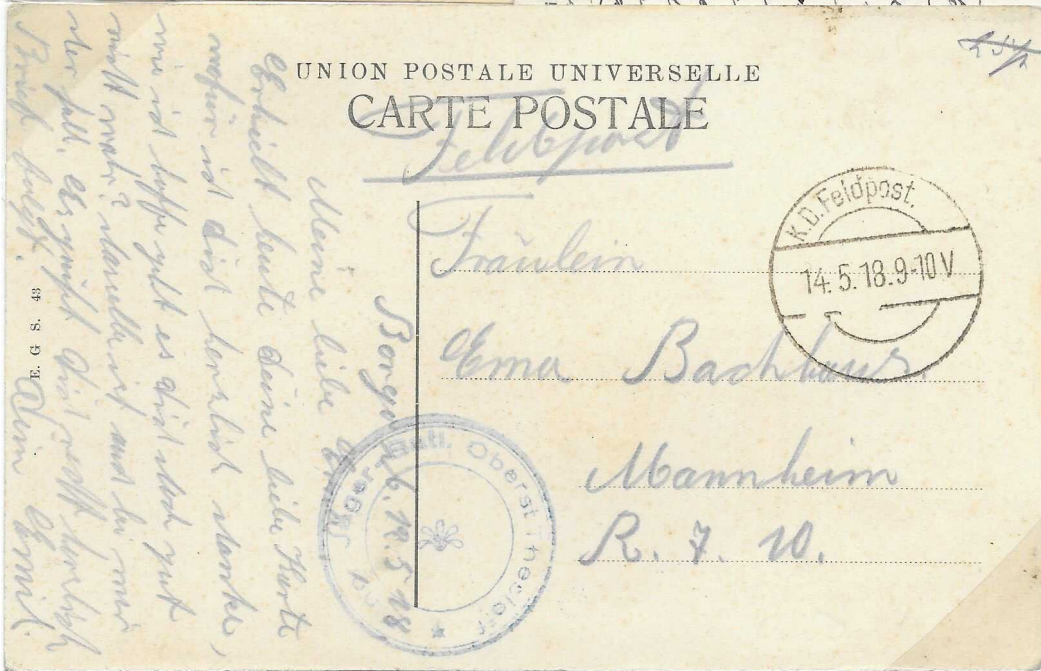 UNION POSTALE UNIVERSELLE
CARTE POSTALE
Feldpost
K.D.Feldpost.
14.5.18.9-10V
Fräulein
Ema Bachhaus.
Mannheim
R. 7. 10.
Jäger Batl. Oberst Thesleff
Borgo 12.5.18
Meine liebe
Erhielt heute deine liebe Karte
wofür ich dich herzlich danke,
wie ich hoffe geht es dir doch gut
nicht wahr? dasselbe ist auch bei mir
der Fall. Es grüßt dich recht herzlich
Dein Emil.
E. G. S. 43